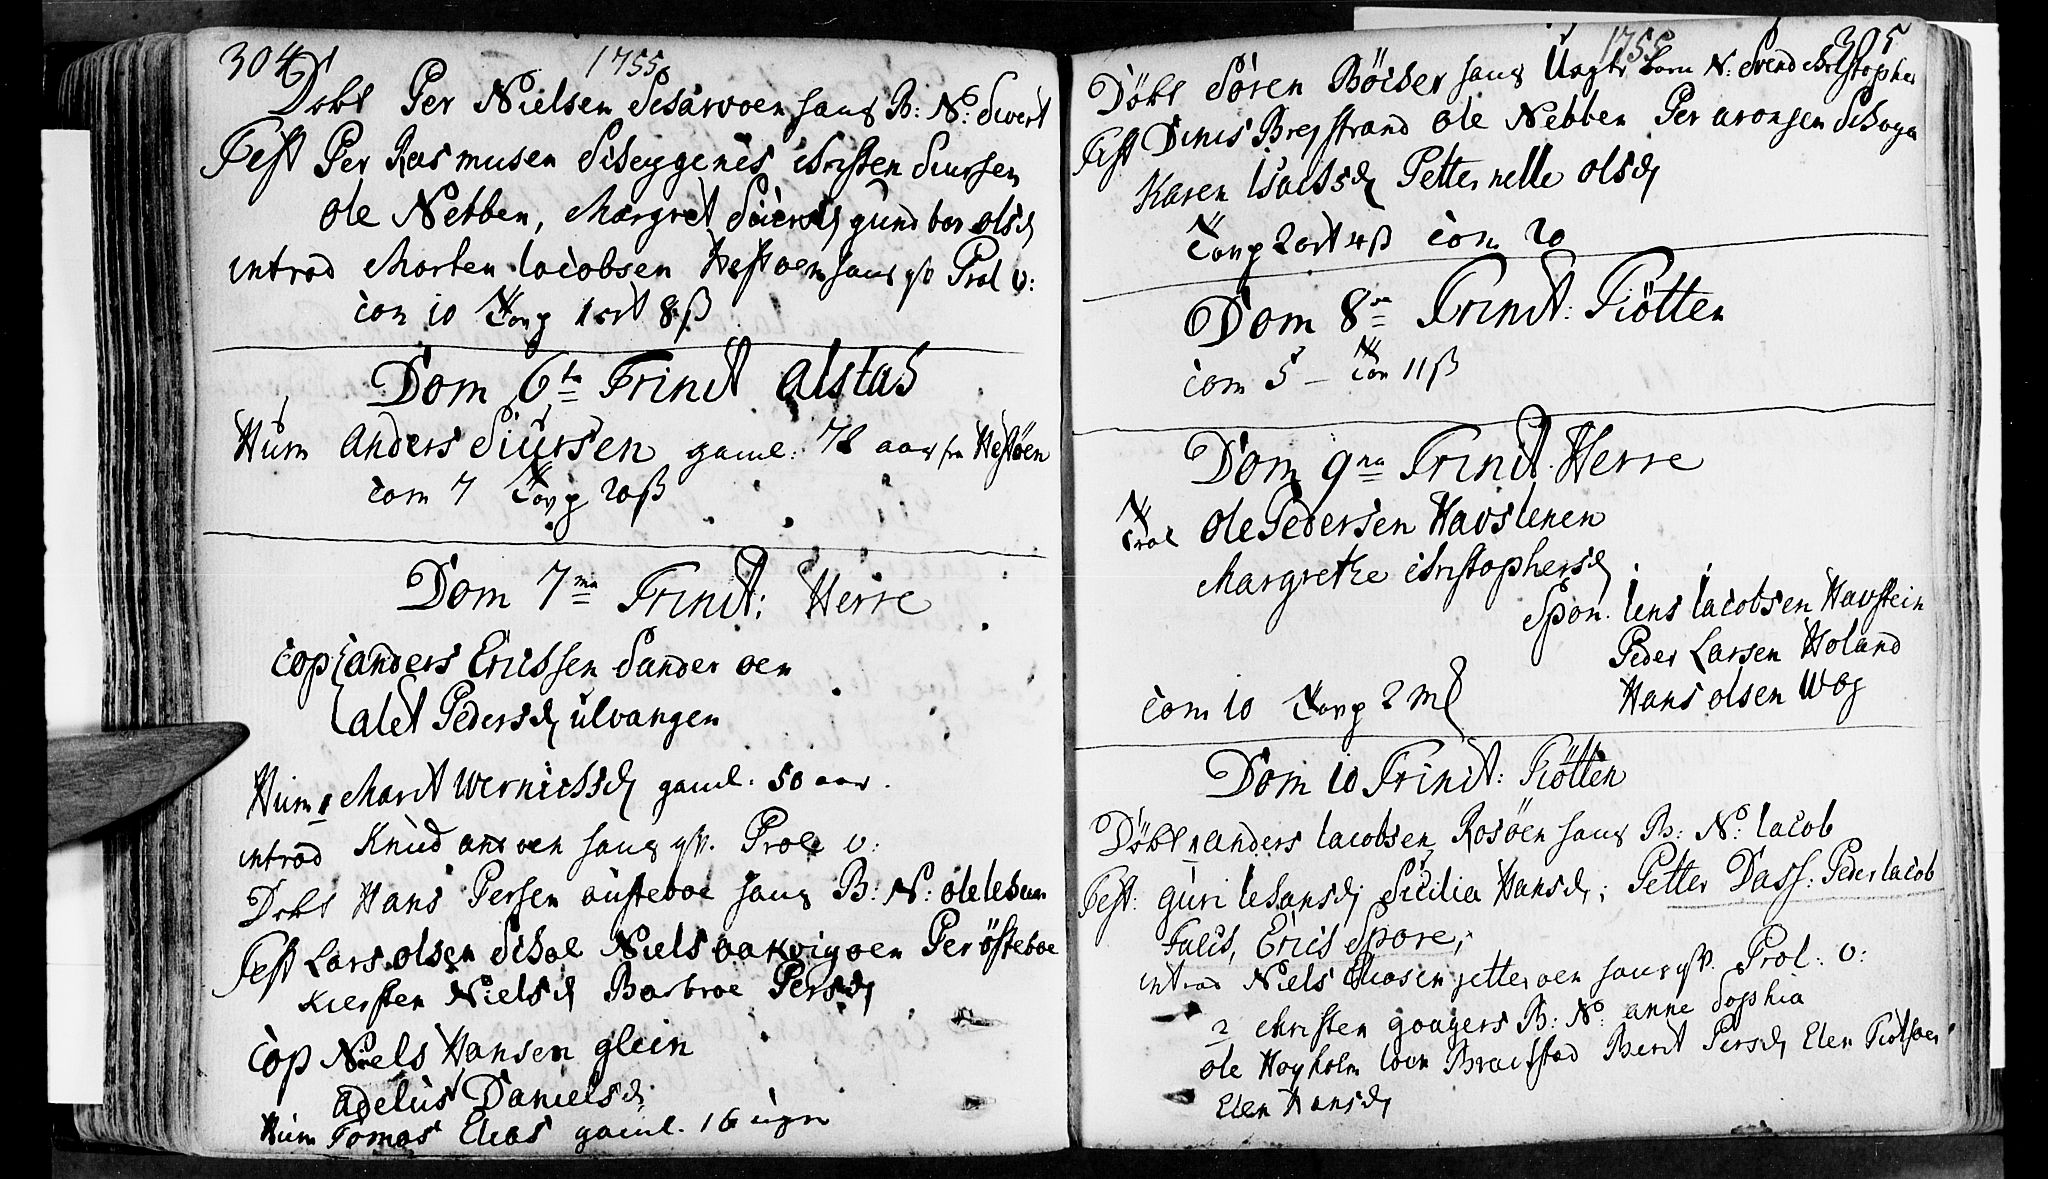 304 1755
Döbt Per Nielsen hans B: N: Sivert
Test Per Rasmusen Christen Siursen
ole Nebben, Margret gundbor olsd
introd Morten Iacobsen Hestoen hans qv Prol v:
com 10 Tavp 1 ort 8 ß
Dom 6ta Trinit alstad
Hum anders Siursen gaml: 78 aar fra Hestöen
com 7 Tavp 20 ß
Dom 7ma Trinit: Herre
cop anders Ericssen Sander oen
alet Pedersd ulvangen
Hum Marit Wernicksd gaml: 50 aar.
introd Knud hans qv. Prole v:
Döbt Hans Persen austeboe hans B: N: ole
Test Lars olsen Niels Per östeboe
Kiersten Nielsd Barbroe Persd
Cop Niels Hansen glein
adelus Danielsd
Hum Tomas Elias gaml. 16 ugr
1755 305
Döbt Sören Böcker hans Uagte barn N: Svend Christopher
Test Dinis ole Nebben Per aronsen
Karen Isacksd Petternelle olsd
Tavp 2 ort 4 ß com 20
Dom 8va Trinit: Tiötten
com 5 – Tav 11 ß
Dom 9na Trinit. Herre
Trol ole Pedersen Havstenen
Margrethe Christophersd
Spon. Iens Iacobsen Havstein
Peder Larsen Holand
Hans olsen Wog
com 10 Tavp 2 m
Dom 10 Trinit: Tiötten
Döbt anders Iacobsen Rosöen hans B: N: Iacob
Test: guri Sicilia Hansd; Petter Dass: Peder Iacob
Falch, Erich Spore;
introd Niels hans qv. Prol: v:
2 Christen B: N: anne Sophia
ole Hoyholm Berit Persd Elen
Elen Hansd